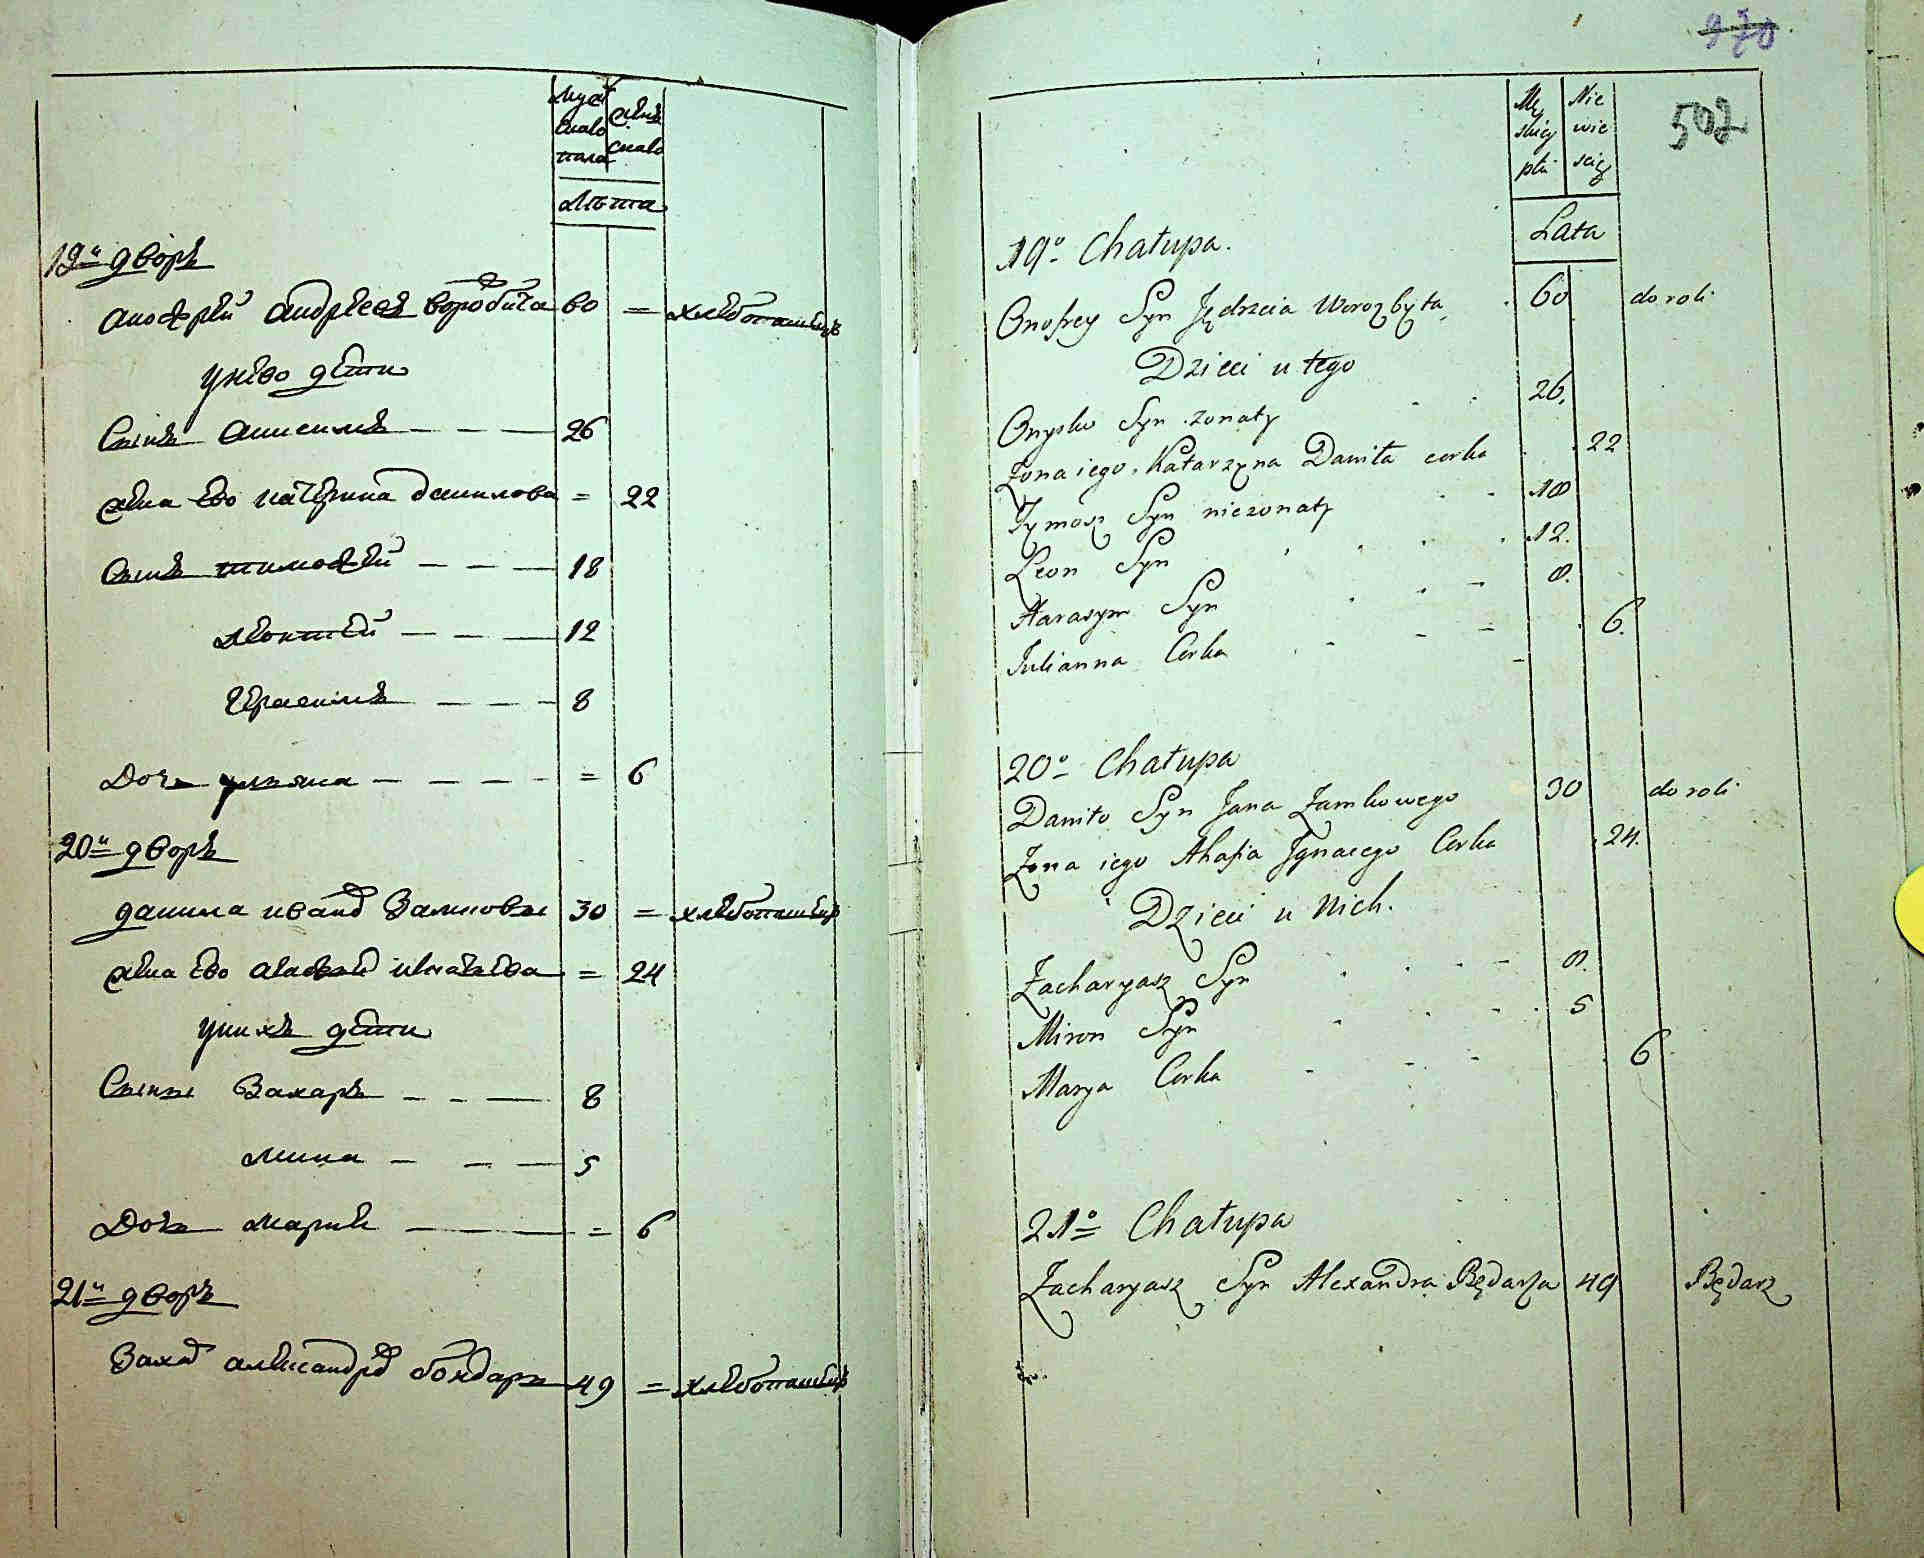 Мужска пола
Женска
Лѣта
19й дворъ
Анофрей Андреевъ Воробита 60 = хлебопашецъ
У него дети
Сынъ Анисимъ 26
Жена ево Катерина Данилова = 22
Сынъ Тимофей 18
Леонтей 12
Герасимъ 8
Дочь Ульяна = 6
20й дворъ
Данила Иванов Замковы 30 = хлебопашецъ
Жена ево Агафья Игнатьева = 24
У них дети
Сыны Захаръ 8
Мина 5
Дочь Мария = 6
21й дворъ
Захар Александров Бондарь 49 = хлебопашецъ
970
502
Męskiey płci
Niewieściey
Lata
19o Chałupa.
Onofrey Syn Jędrzeia Worozbyta 60 do roli
Dzieci u tego
Onysko Syn zonaty 26.
Zona iego Katarzyna Daniła corka 22
Tymosz Syn niezonaty 18
Leon Syn 12.
Harasym Syn 8.
Julianna Corka 6.
20o Chałupa
Daniło Syn Jana Zamkowego 30 do roli
Zona iego Ahafia Jgnacego Corka 24.
Dzieci u Nich.
Zacharyasz Syn 8.
Miron Syn 5
Marya Corka 6
21o Chałupa
Zacharyasz Syn Alexandra Będarza 49 Będarz